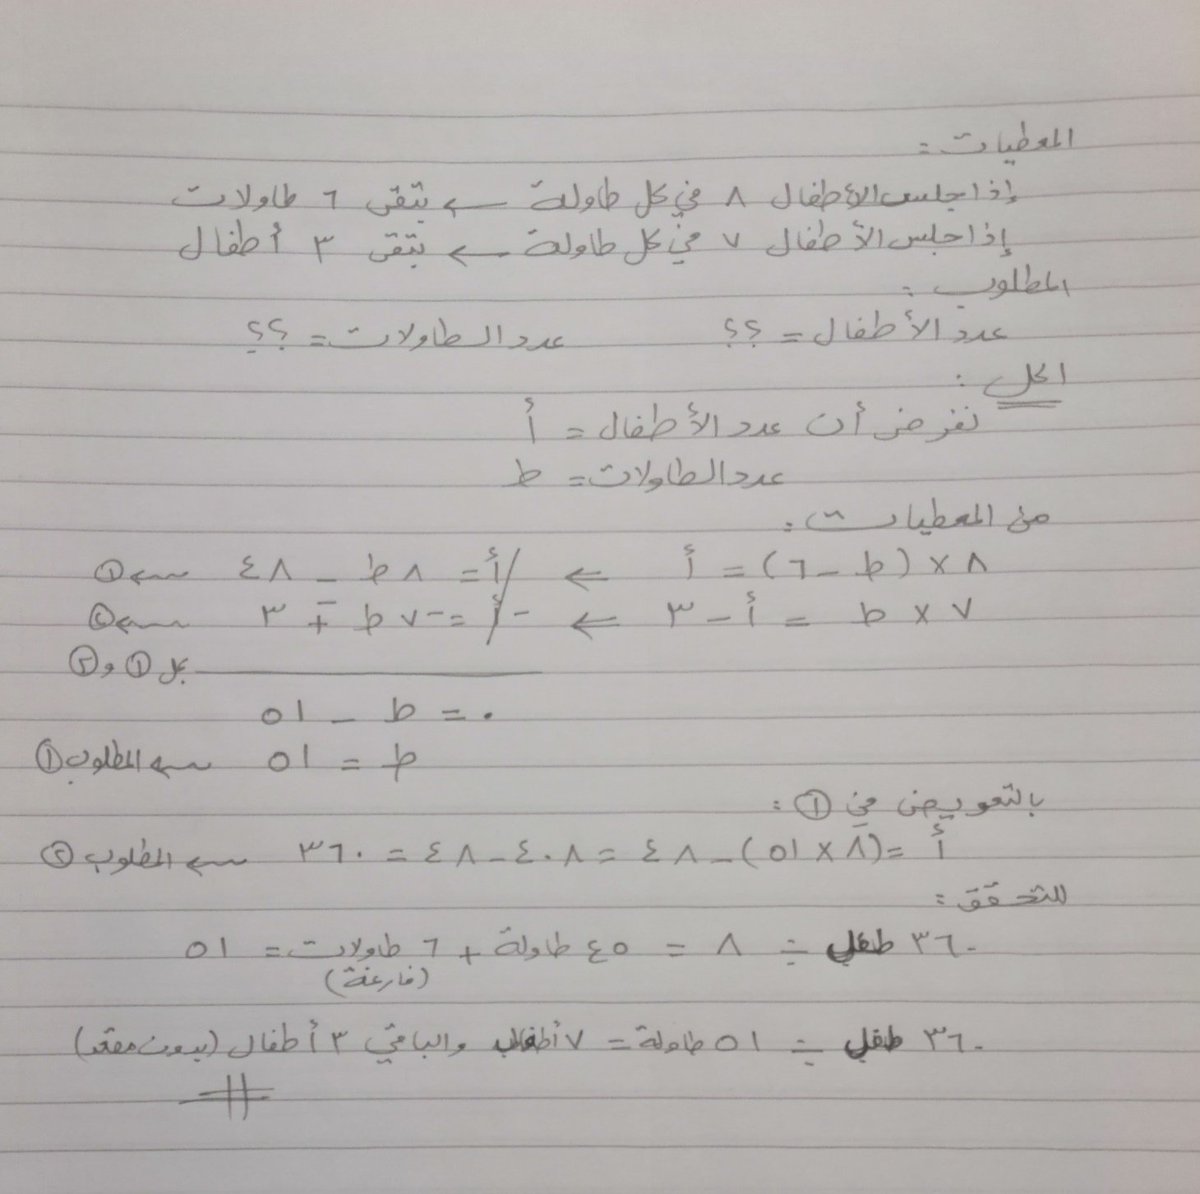 المعطيات :
إذا جلس الأطفال ٨ في كل طاولة ← يتبقى ٦ طاولات
إذا جلس الأطفال ٧ في كل طاولة ← يتبقى ٣ أطفال
المطلوب :
عدد الأطفال = ؟؟ عدد الطاولات = ؟؟
الحل :
نفرض أن عدد الأطفال = أ
عدد الطاولات = ط
من المعطيات :
٨ × (ط - ٦) = أ ← أ = ٨ ط - ٤٨ ← ①
٧ × ط = أ - ٣ ← - أ = - ٧ ط ∓ ٣ ← ②
بحل ① و ②
٠ = ط - ٥١
ط = ٥١ ← المطلوب ①
بالتعويض في ① :
أ = (٨ × ٥١) - ٤٨ = ٤٠٨ - ٤٨ = ٣٦٠ ← المطلوب ②
للتحقق :
٣٦٠ طفل ÷ ٨ = ٤٥ طاولة + ٦ طاولات = ٥١
(فارغة)
٣٦٠ طفل ÷ ٥١ طاولة = ٧ أطفال والباقي ٣ أطفال (بدون مقعد)